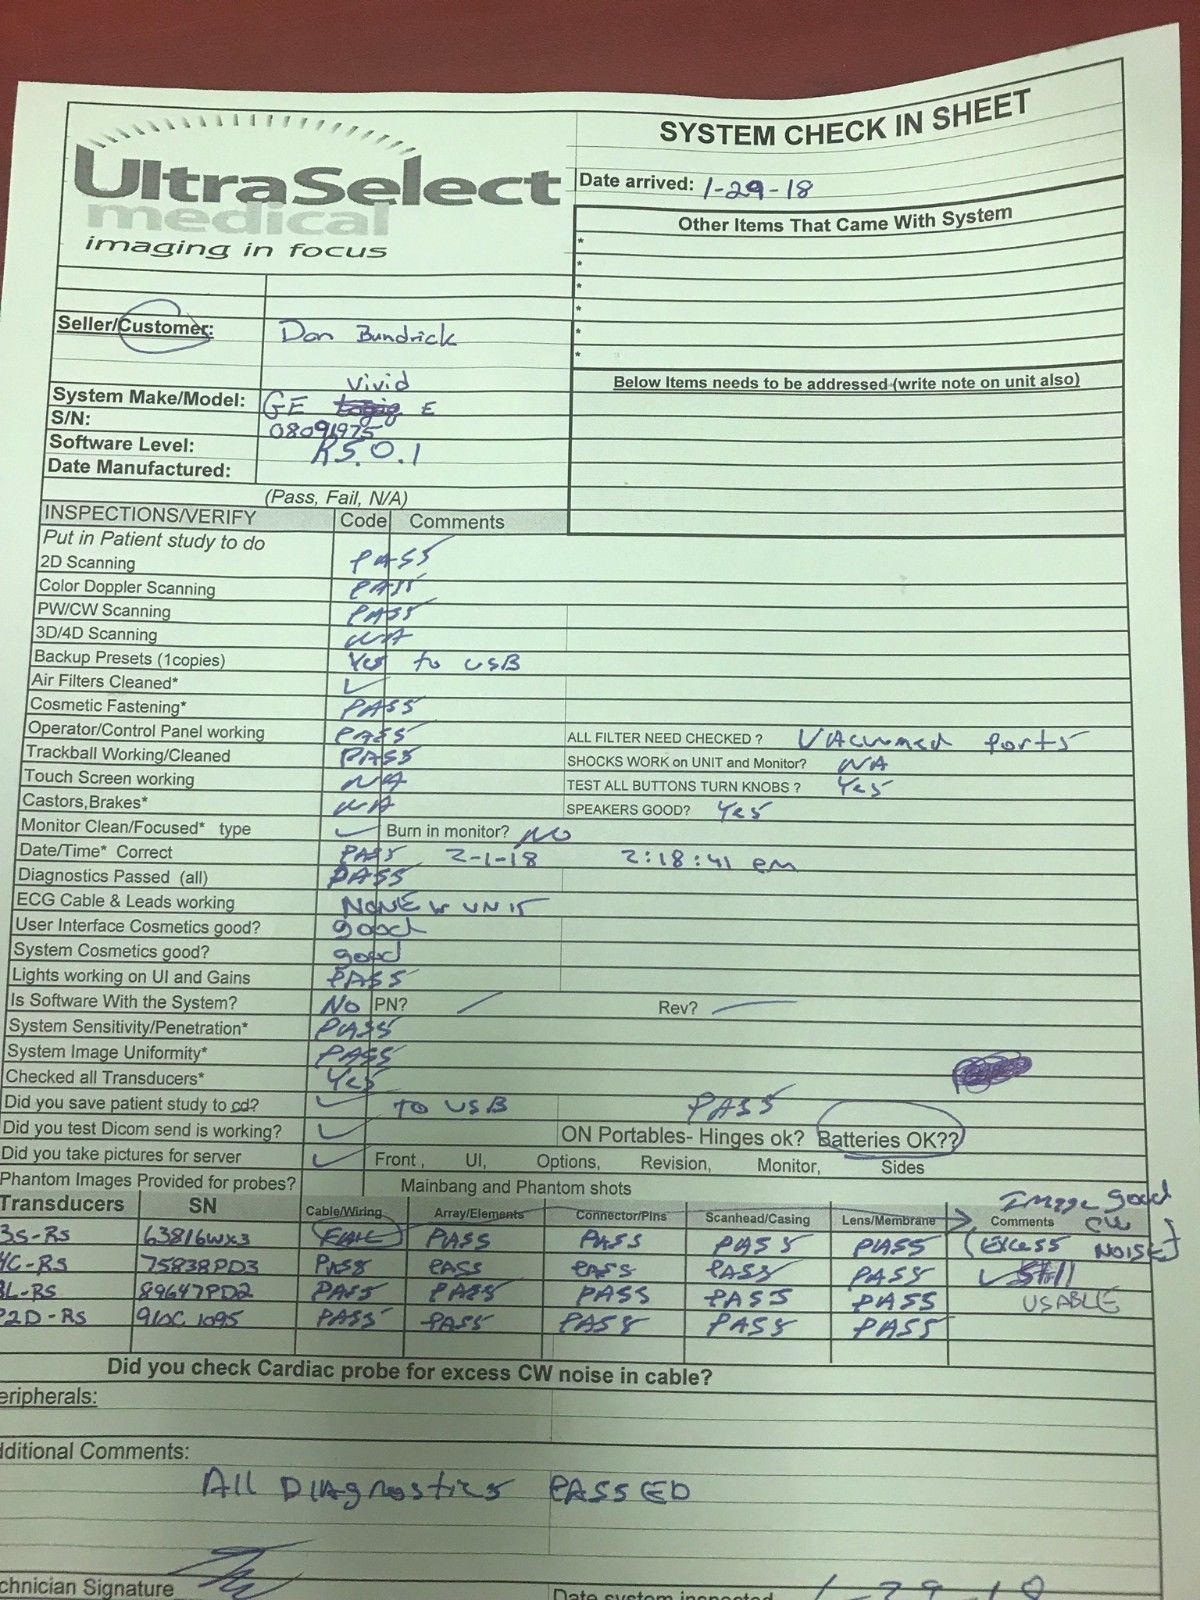 UltraSelect
medical
imaging in focus
SYSTEM CHECK IN SHEET
Date arrived: 1-29-18
Other Items That Came With System
*
*
*
*
*
*
Seller/Customer: Don Bundrick
Below Items needs to be addressed (write note on unit also)
Vivid
System Make/Model: GE E
S/N: 08091975
Software Level: R5.0.1
Date Manufactured:
(Pass, Fail, N/A)
INSPECTIONS/VERIFY Code Comments
Put in Patient study to do
2D Scanning PASS
Color Doppler Scanning PASS
PW/CW Scanning PASS
3D/4D Scanning NA
Backup Presets (1copies) Yes to USB
Air Filters Cleaned* ✓
Cosmetic Fastening* PASS
Operator/Control Panel working PASS ALL FILTER NEED CHECKED ? VAcuumed ports
Trackball Working/Cleaned PASS SHOCKS WORK on UNIT and Monitor? NA
Touch Screen working NA TEST ALL BUTTONS TURN KNOBS ? Yes
Castors,Brakes* NA SPEAKERS GOOD? Yes
Monitor Clean/Focused* type ✓ Burn in monitor? NO
Date/Time* Correct PASS 2-1-18 2:18:41 pm
Diagnostics Passed (all) PASS
ECG Cable & Leads working NONE w UNIT
User Interface Cosmetics good? good
System Cosmetics good? good
Lights working on UI and Gains PASS
Is Software With the System? NO PN? Rev?
System Sensitivity/Penetration* PASS
System Image Uniformity* PASS
Checked all Transducers* Yes
Did you save patient study to cd? ✓ TO USB PASS
Did you test Dicom send is working? ✓ ON Portables- Hinges ok? Batteries OK??
Did you take pictures for server ✓ Front , UI, Options, Revision, Monitor, Sides
Phantom Images Provided for probes? Mainbang and Phantom shots
Image good
Transducers SN Cable/Wiring Array/Elements Connector/Pins Scanhead/Casing Lens/Membrane Comments CW
3S-RS 63816WX3 FAIL PASS PASS PASS PASS (Excess NOISE)
4C-RS 75838PD3 PASS PASS PASS PASS PASS ✓ Still
8L-RS 89647PD2 PASS PASS PASS PASS PASS USABLE
P2D-RS PASS PASS PASS PASS PASS
Did you check Cardiac probe for excess CW noise in cable?
eripherals:
dditional Comments:
All DIAgnostics PASSED
chnician Signature Date system inspected 1-29-18